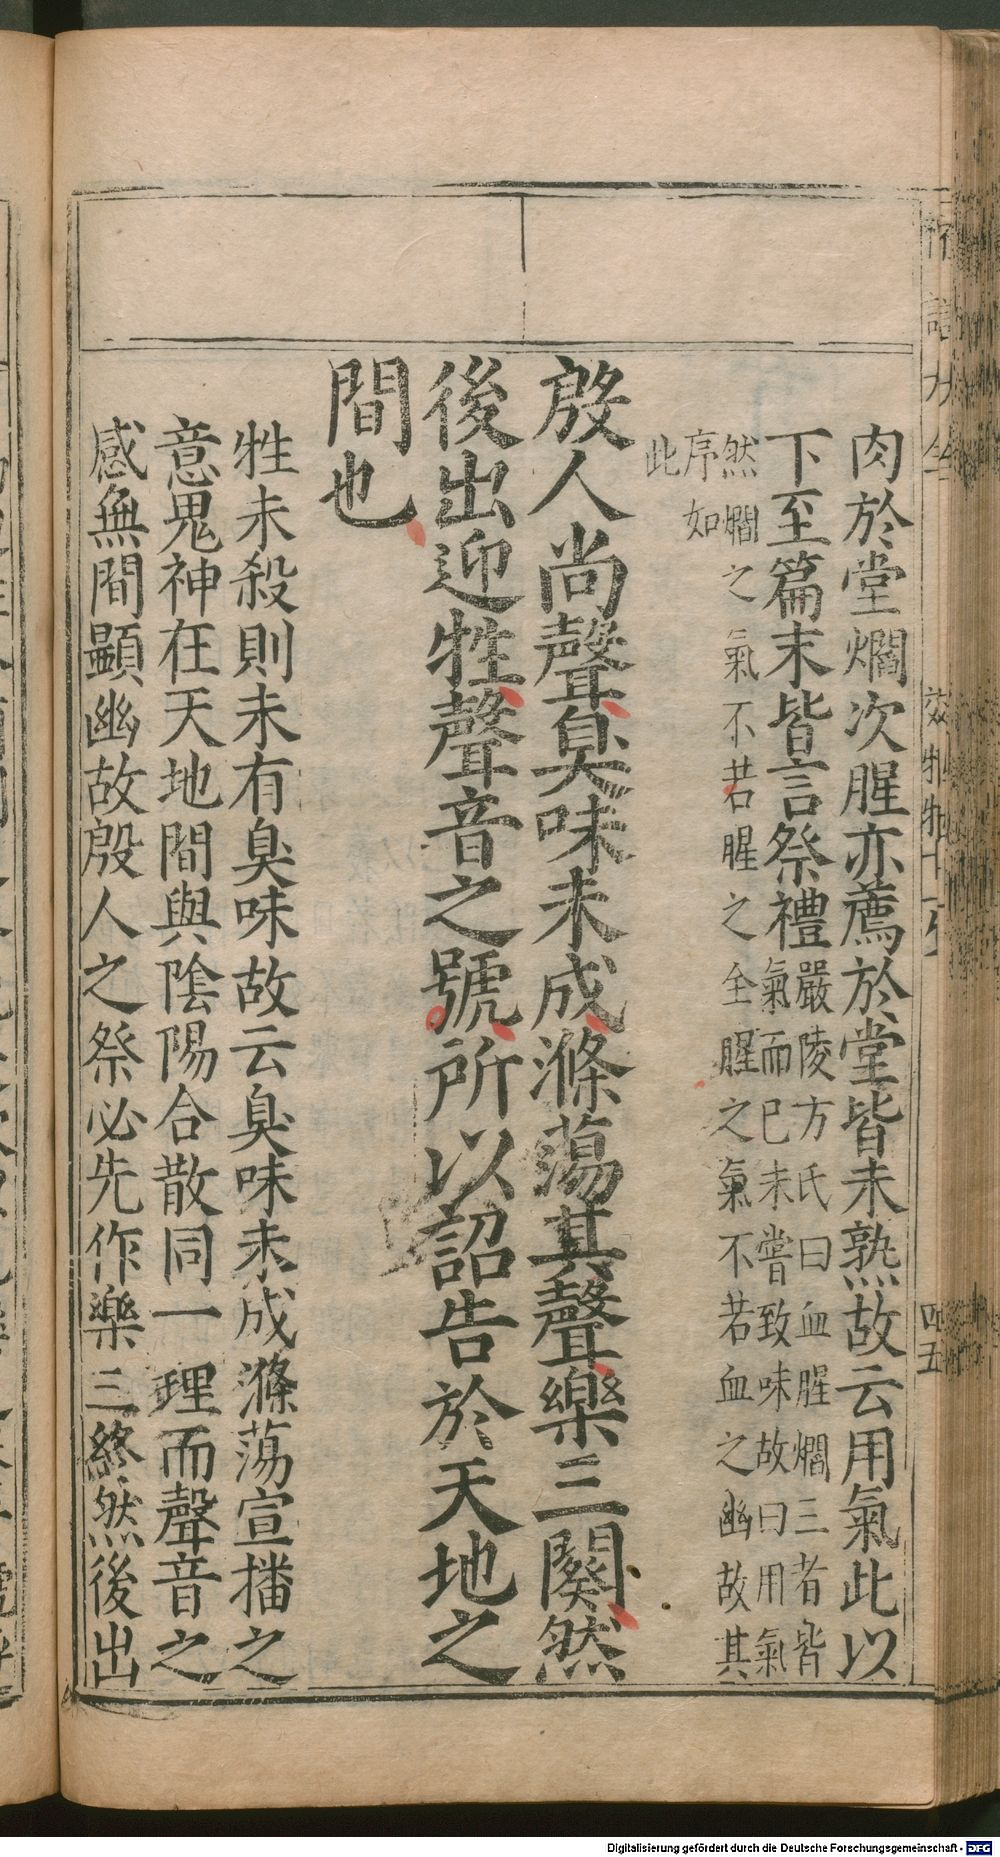 肉於堂爓次腥亦薦於堂皆未熟故云用氣此以
下至篇末皆言祭禮
嚴陵方氏曰血腥爓三者皆
氣而已未嘗致味故曰用氣
然爓之氣不若腥之全腥之氣不若血之幽故其
序如
此
殷人尚聲臭味未成滌蕩其聲樂三闋然
後出迎牲聲音之號所以詔告於天地之
間也
牲未殺則未有臭味故云臭味未成滌蕩宣播之
意鬼神在天地間與陰陽合散同一理而聲音之
感無間顯幽故殷人之祭必先作樂三終然後出
四五
Digitalisierung gefördert durch die Deutsche Forschungsgemeinschaft - DFG